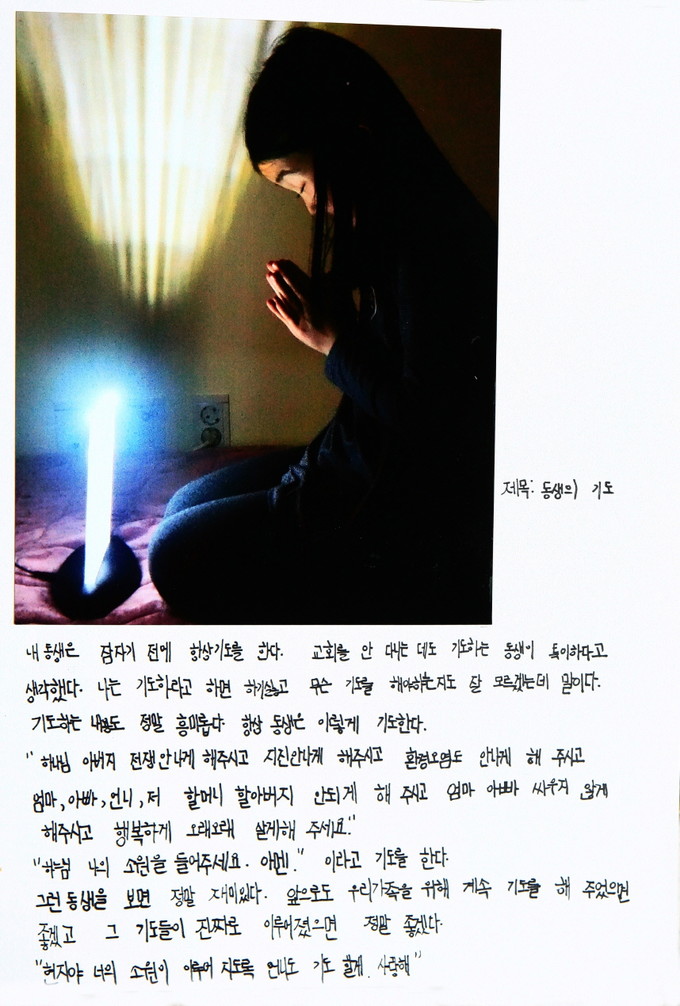 제목: 동생의 기도
내 동생은 잠자기 전에 항상기도를 한다. 교회를 안 다니는 데도 기도하는 동생이 특이하다고
생각했다. 나는 기도하라고 하면 하기싫고 무슨 기도를 해야하는지도 잘 모르겠는데 말이다.
기도하는 내용도 정말 흥미롭다 항상 동생은 이렇게 기도한다.
"하나님 아버지 전쟁안나게 해주시고 지진안나게 해주시고 환경오염도 안나게 해 주시고
엄마, 아빠, 언니, 저 할머니 할아버지 안되게 해 주시고 엄마 아빠 싸우지 않게
해주시고 행복하게 오래오래 살게해 주세요."
"하느님 나의 소원을 들어주세요. 아멘." 이라고 기도를 한다.
그런 동생을 보면 정말 재미있다. 앞으로도 우리가족을 위해 계속 기도를 해 주었으면
좋겠고 그 기도들이 진짜로 이루어졌으면 정말 좋겠다.
"현지야 너의 소원이 이루어 지도록 언니도 기도 할게. 사랑해"